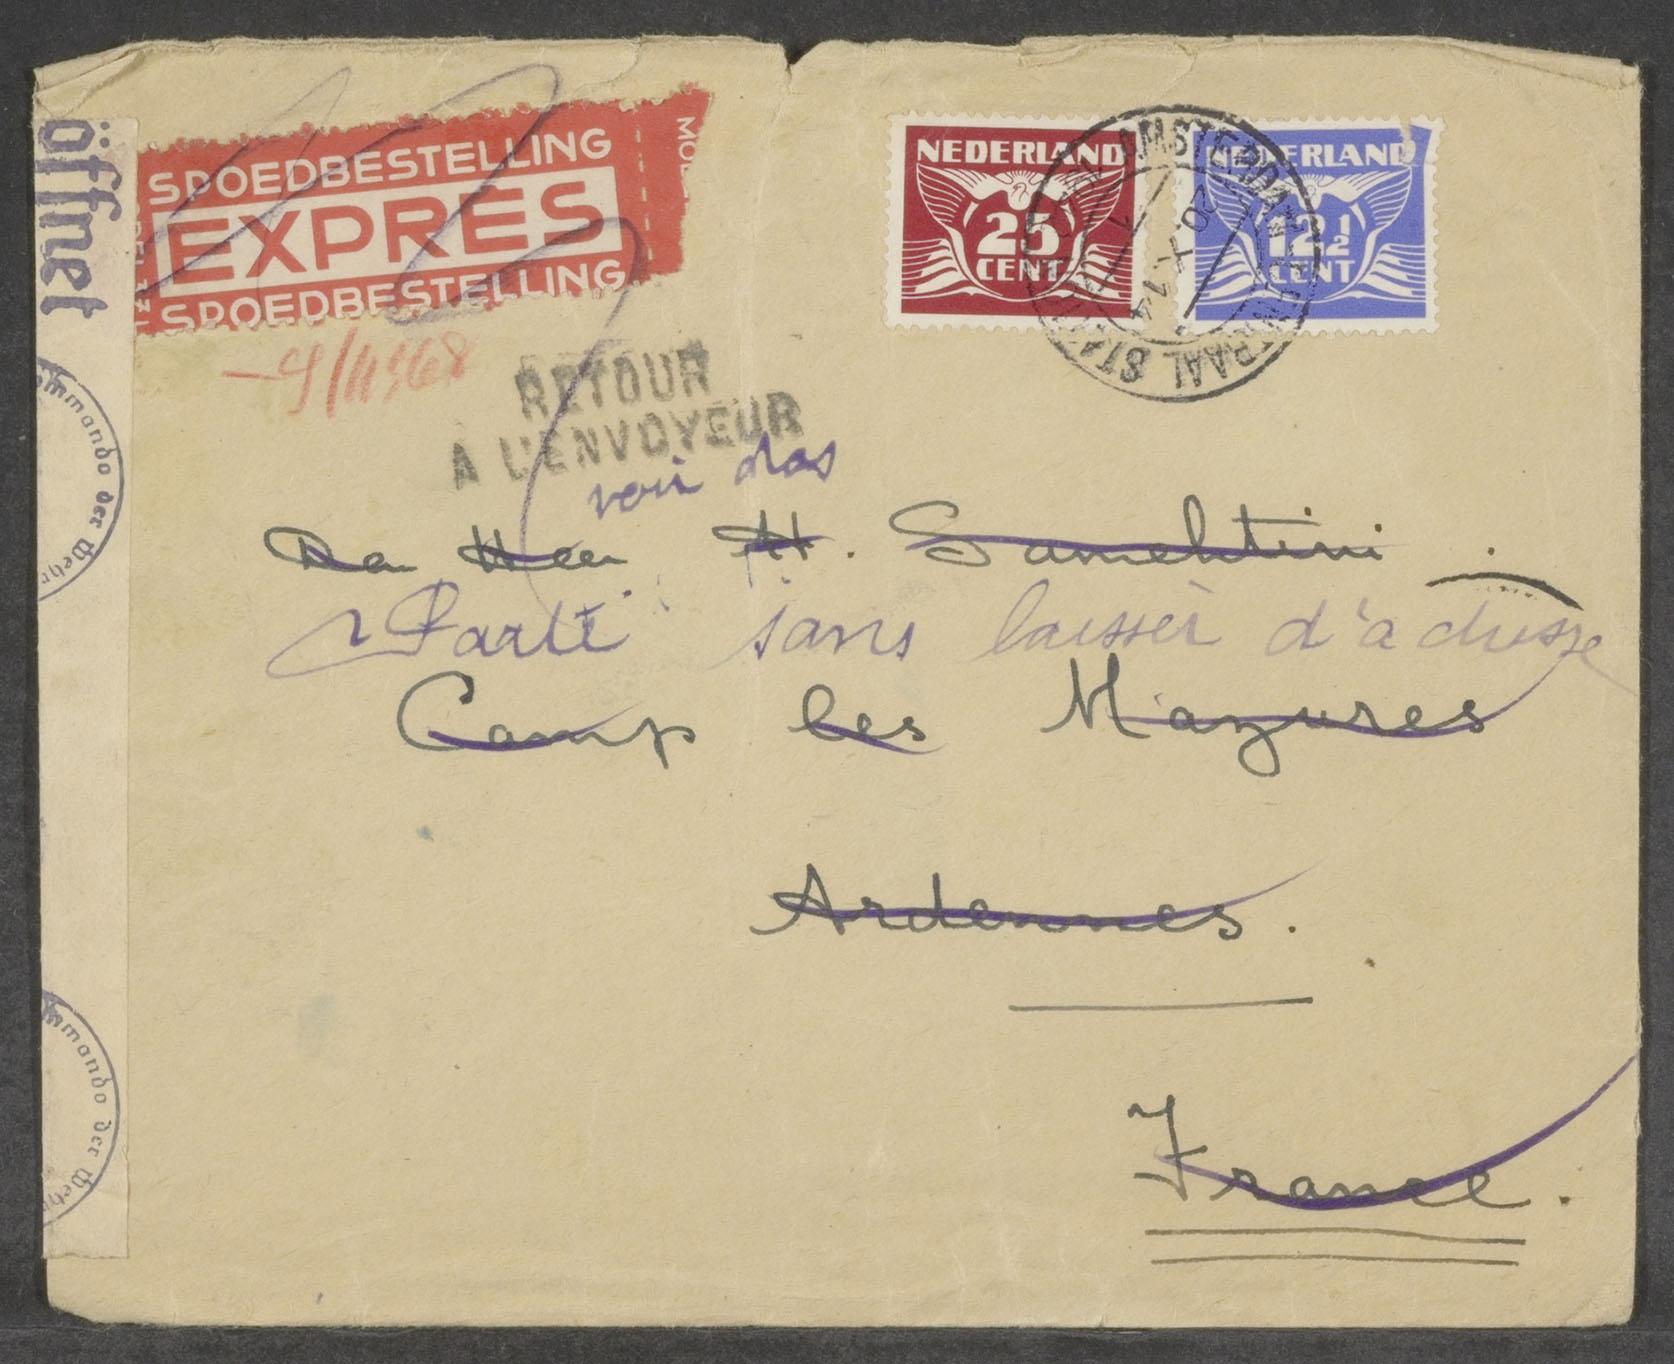 SPOEDBESTELLING
EXPRES
SPOEDBESTELLING
NEDERLAND
25
CENT
NEDERLAND
12½
CENT
AMSTERDAM CENTRAAL STATION
öffnet
RETOUR
A L'ENVOYEUR
voir dos
Den Heer H. Samehtini.
Parti sans laisser d'adresse
Camp les Mazures
Ardennes.
France.
mmando der Weh
mmando der Weh